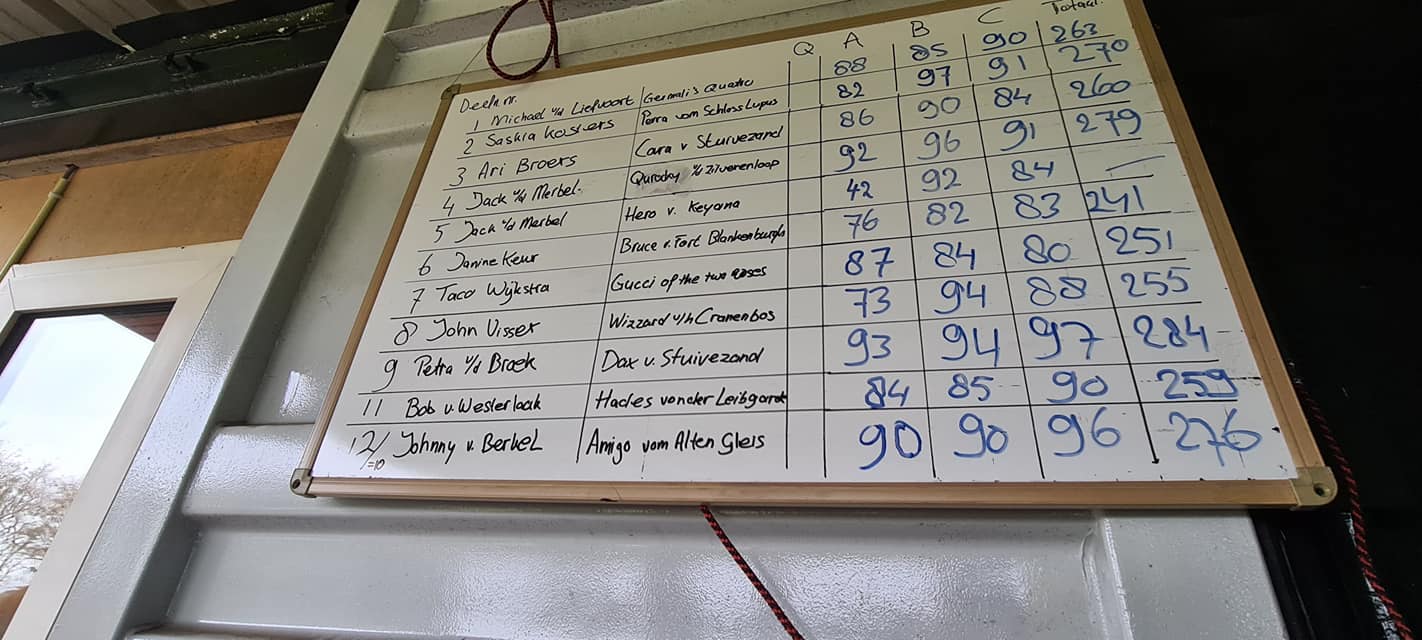 Deeln nr. Q A B C Totaal
1 Michael v/d Liefvoort Germali's Quatro 88 85 90 263
2 Saskia Kosters Perra vom Schloss Lupus 82 97 91 270
3 Ari Broers Cara v Stuivezand 86 90 84 260
4 Jack v/d Merbel. v/d Zilverenloop 92 96 91 279
5 Jack v/d Merbel Hero v. Keyana 42 92 84 —
6 Janine Keur Bruce v. Fort Blankenburgh 76 82 83 241
7 Taco Wijkstra Gucci of the two roses 87 84 80 251
8 John Visser Wizzard v/h Cranenbos 73 94 88 255
9 Petra v/d Broek Dax v. Stuivezand 93 94 97 284
11 Bob v. Westerlaak Hades vonder Leibgarde 84 85 90 259
12/=10 Johnny v. Berkel Amigo vom Alten Gleis 90 90 96 276